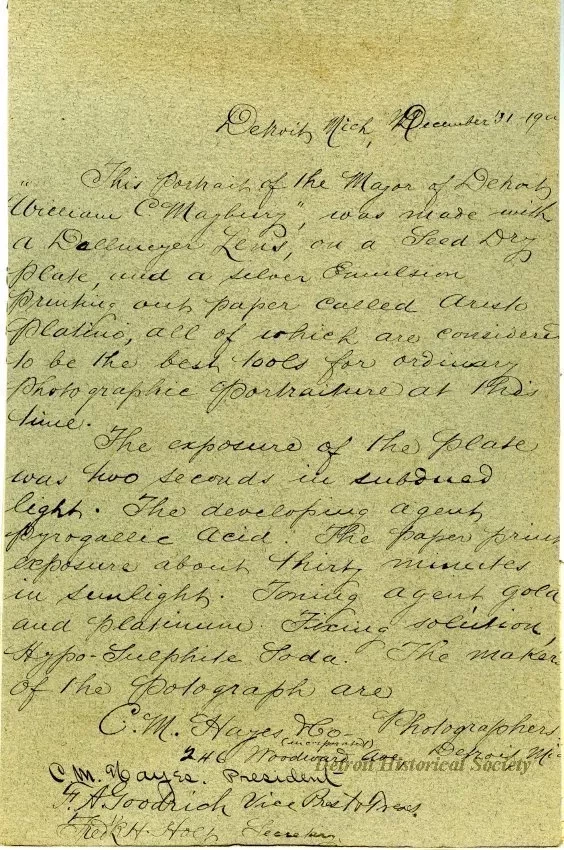 Detroit, Mich, December 31-190
" This Portrait of the Mayor of Detroit,
William C Maybury", was made with
a Dallmeyer Lens, on a Seed Dry
Plate, and a silver Emulsion
Printing out paper called Aristo
Platino, all of which are consider
to be the best tools for ordinary
Photographic Portraiture at this
time.
The exposure of the Plate
was two seconds in subdued
light. The developing agent
Pyrogallic Acid. The paper print
exposure about thirty minutes
in sunlight. Toning agent gold
and platinum. Fixing solution,
Hypo-Sulphite Soda. The maker
of the Potograph are
C. M. Hayes & Co- Photographers
(incorporated)
246 Woodward Ave, Detroit, Mic
Detroit Historical Society
C. M. Hayes. President
F. A. Goodrich Vice Prest & Treas.
Fred'k H. Holt Secretary